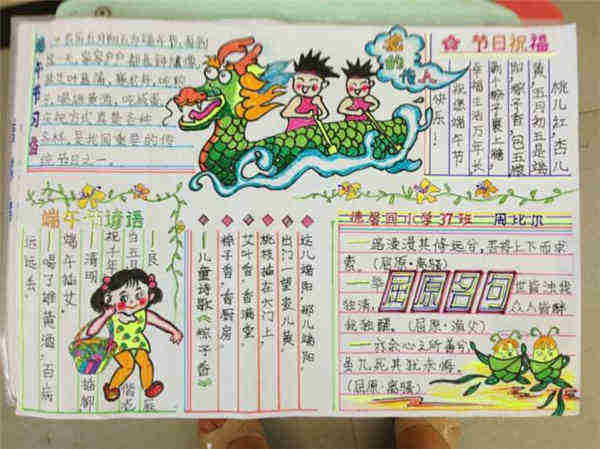 端午节习俗
农历五月初五为端午节,每到
这一天,家家户户都悬钟馗像,
挂艾叶菖蒲,赛龙舟,吃粽
子,喝雄黄酒,吃咸蛋,
庆祝方式真是多种
多样,是我国重要的传
统节日之一。
龙的传人
节日祝福
桃儿红,杏儿
黄,五月初五是端
阳,粽子香,包五粮,
剥个粽子裹上糖,
幸福生活万年长,
祝您端午节
快乐!
端午节谚语
——清明插柳,
端午插艾。
——喝了雄黄酒,百病
远远丢。
这儿端阳,那儿端阳。
出门一望麦儿黄。
桃枝插在大门上,
艾叶香,香满堂,
粽子香,香厨房。
——儿童诗歌《粽子香》
德馨园小学37班 周比尔
屈原名句
——路漫漫其修远兮,吾将上下而求
索。(屈原·离骚)
——举世皆浊我
独清,众人皆醉
我独醒。(屈原·渔父)
——亦余心之所善兮,
虽九死其犹未悔。
(屈原·离骚)